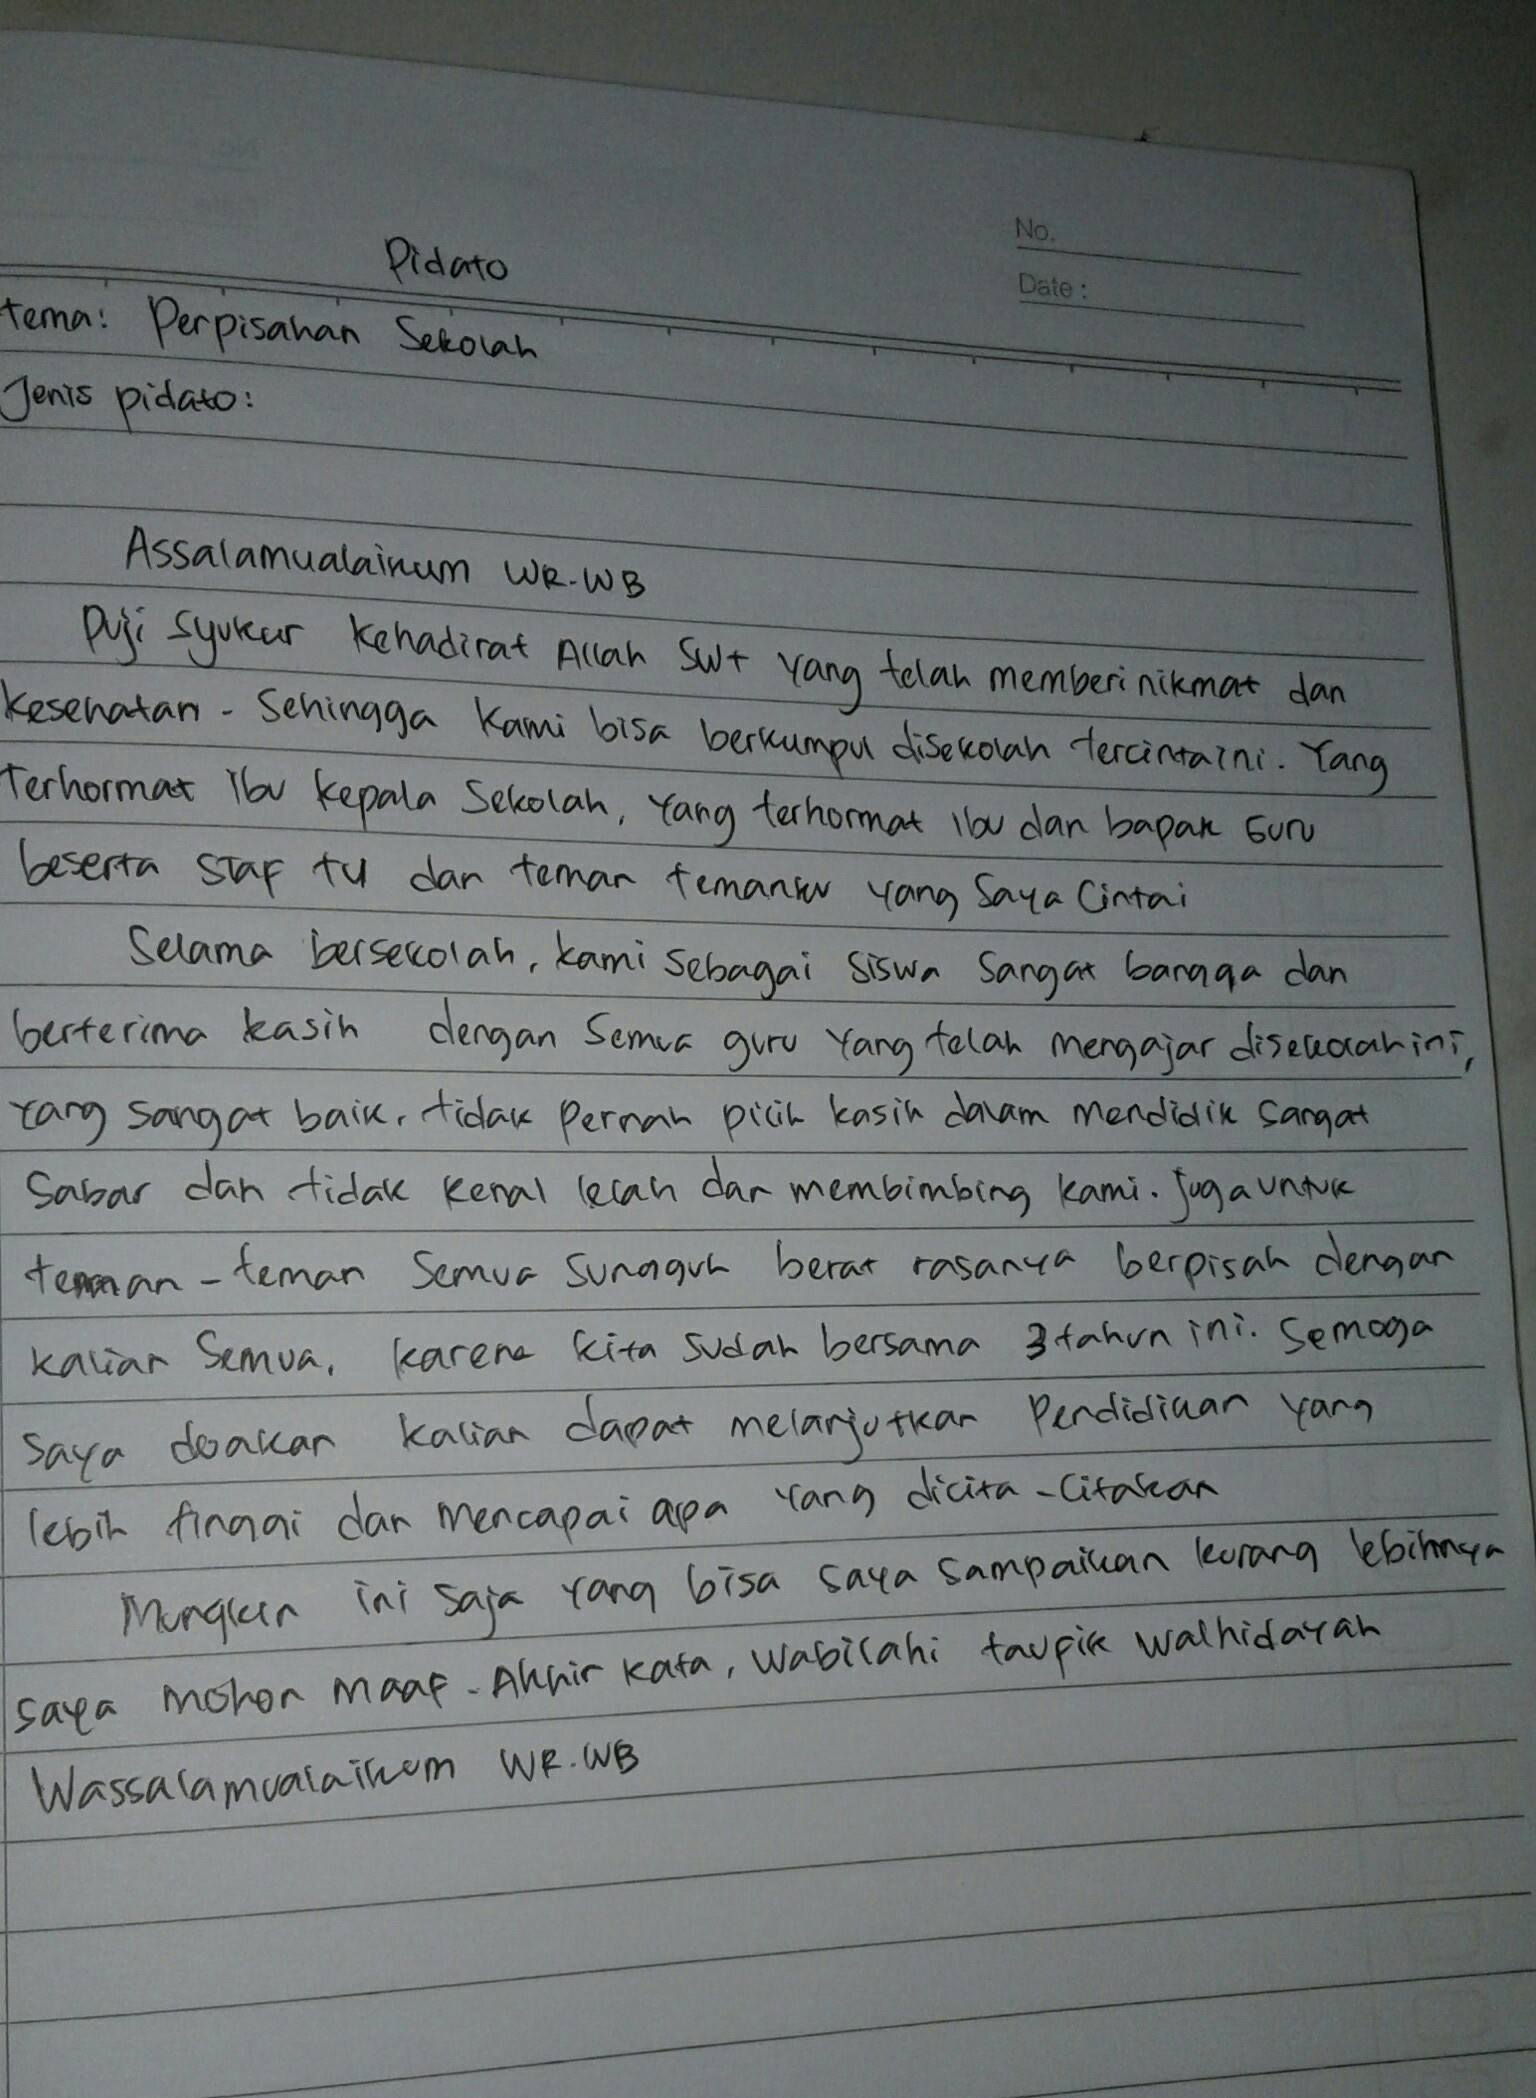 No.
Date :
Pidato
tema: Perpisahan Sekolah
Jenis pidato:
Assalamualaikum WR.WB
Puji syukur kehadirat Allah SWT yang telah memberi nikmat dan
kesehatan. Sehingga kami bisa berkumpul disekolah tercinta ini. Yang
terhormat Ibu kepala Sekolah, Yang terhormat Ibu dan bapak Guru
beserta Staf TU dan teman temanku yang Saya Cintai
Selama bersekolah, kami sebagai siswa sangat bangga dan
berterima kasih dengan semua guru yang telah mengajar disekolah ini,
yang sangat baik, tidak pernah pilih kasih dalam mendidik sangat
sabar dan tidak kenal lelah dan membimbing kami. Juga untuk
teman - teman semua sungguh berat rasanya berpisah dengan
kalian semua, karena kita sudah bersama 3 tahun ini. Semoga
saya doakan kalian dapat melanjutkan Pendidikan yang
lebih tinggi dan mencapai apa yang dicita - citakan
Mungkin ini saja yang bisa saya sampaikan kurang lebihnya
saya mohon maaf. Akhir kata, wabilahi taufik walhidayah
Wassalamualaikum WR.WB